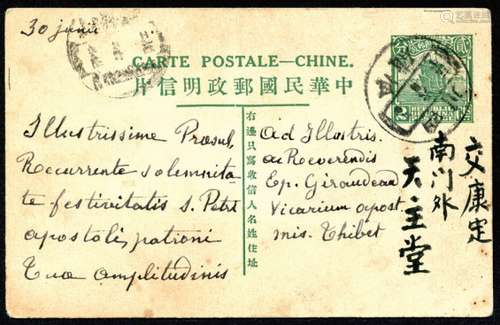 30 junii
CARTE POSTALE—CHINE.
片信明政郵國民華中
Illustrissime Praesul,
Recurrente solemnita
te festivitatis S. Petri
apostoli, patroni
Tuae amplitudinis
右邊只寫收信人名姓住址
Ad Illustris.
ac Reverendis
Ep. Giraudeau
Vicarium apost
mis. Thibet
交康定
南门外
天主堂
分 貳
2